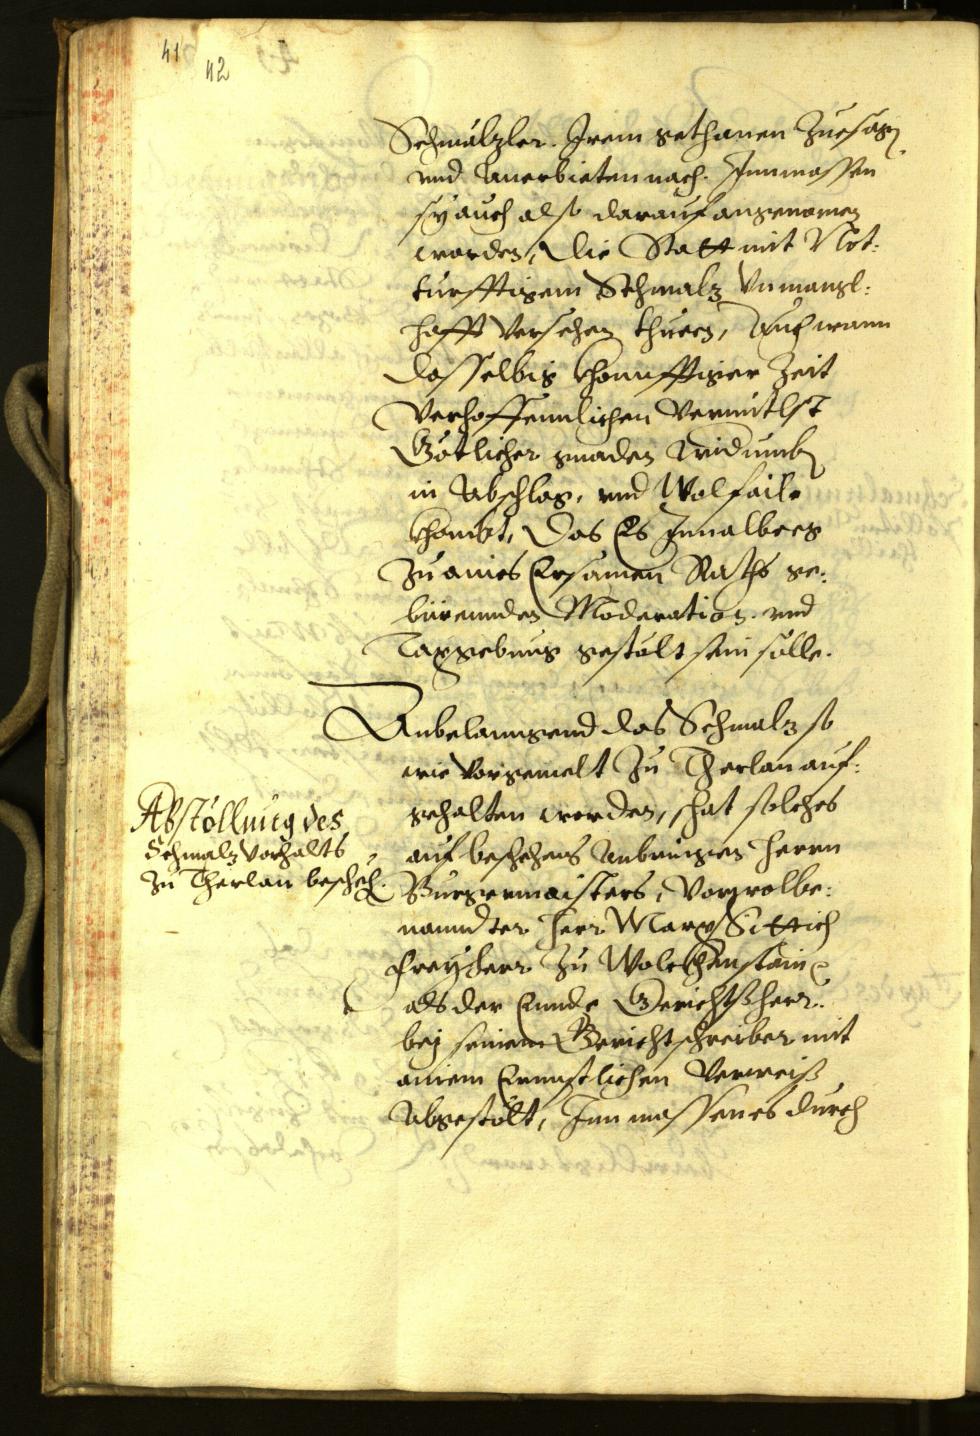 41
42
Schmalzler. Irem gethanen Zuesag
vnd Anerbieten nach. Inmassen
sy auch also darauf angenomen
worden, die Statt mit Not-
turfftigem Schmalz Vnmangl-
hafft Versehen thueen, Auch wann
dasselbig khonnfftiger Zeit
Verhoffennlichen Vermitlst
Götlicher gnaden widrumb
in Abschlag, vnd Wolfaile
khombt, Das Es Innalweeg
Zu aines Ersamen Raths ge-
bürennden Moderation. vnd
Taxgebung gestölt sein solle.
Anbelanngend das Schmalz so
wie Vorgemelt Zu Therlan auf-
gehalten worden, hat solches
auf beschehens Anbringen Herrn
Burgermaisters, Vorwolbe-
nanndter Herr Marx Sittich
Freyherr Zu Wolckhenstain
als der Ennde Gerichtßherr.
bej seinem Gerichtschreiber mit
ainem Ernnstlichen Verweiß
Abgestölt, Inmassen es durch
Abstöllung des
Schmalz Vorhalts
Zu Therlan bescheh.